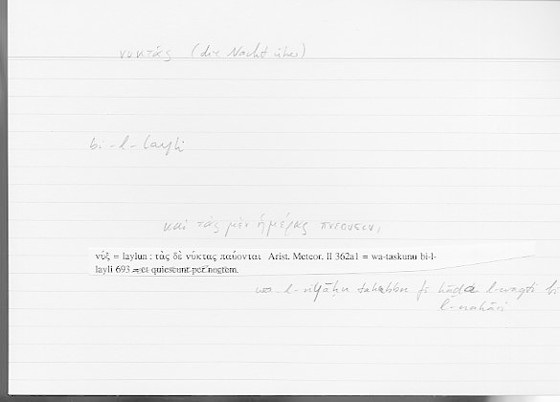 νυκτάς (die Nacht über)
bi-l-layli
καὶ τὰς μὲν ἡμέρας πνέουσιν,
νύξ = laylun : τὰς δὲ νύκτας παύονται Arist. Meteor. II 362a1 = wa-taskunu bi-l-
layli 693 = et quiescunt per noctem.
wa-l-riyāḥu tahubbu fī hāḏā l-waqti bi
l-nahāri